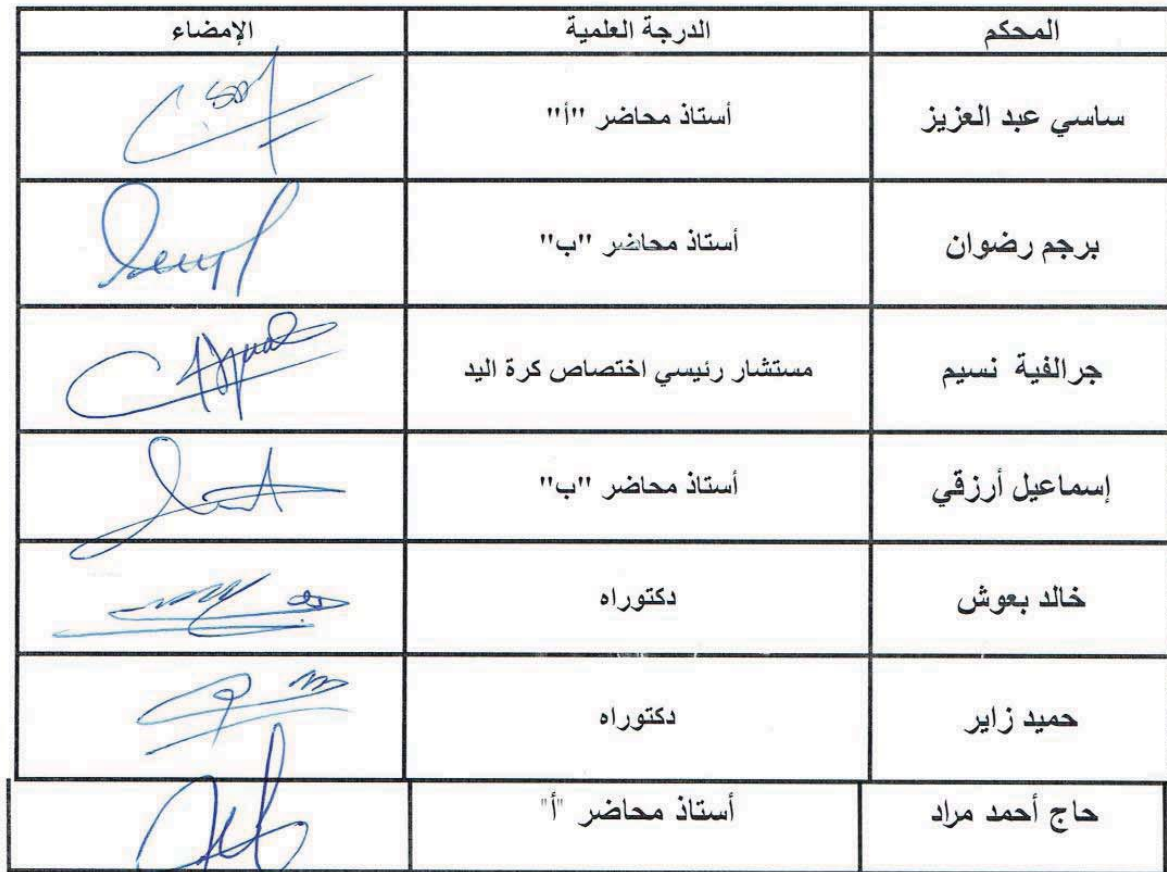 المحكم الدرجة العلمية الإمضاء
ساسي عبد العزيز أستاذ محاضر "أ"
برجم رضوان أستاذ محاضر "ب"
جرالفية نسيم مستشار رئيسي اختصاص كرة اليد
إسماعيل أرزقي أستاذ محاضر "ب"
خالد بعوش دكتوراه
حميد زاير دكتوراه
حاج أحمد مراد أستاذ محاضر "أ"